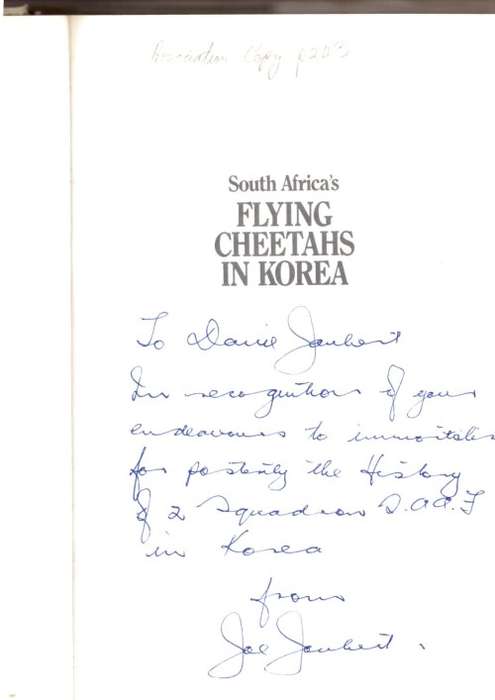 Association Copy p203
South Africa's
FLYING
CHEETAHS
IN KOREA
To Danie Joubert
In recognition of your
endeavours to immortalise
for posterity the History
of 2 Squadron S.A.A.F
in Korea
from
Joe Joubert.